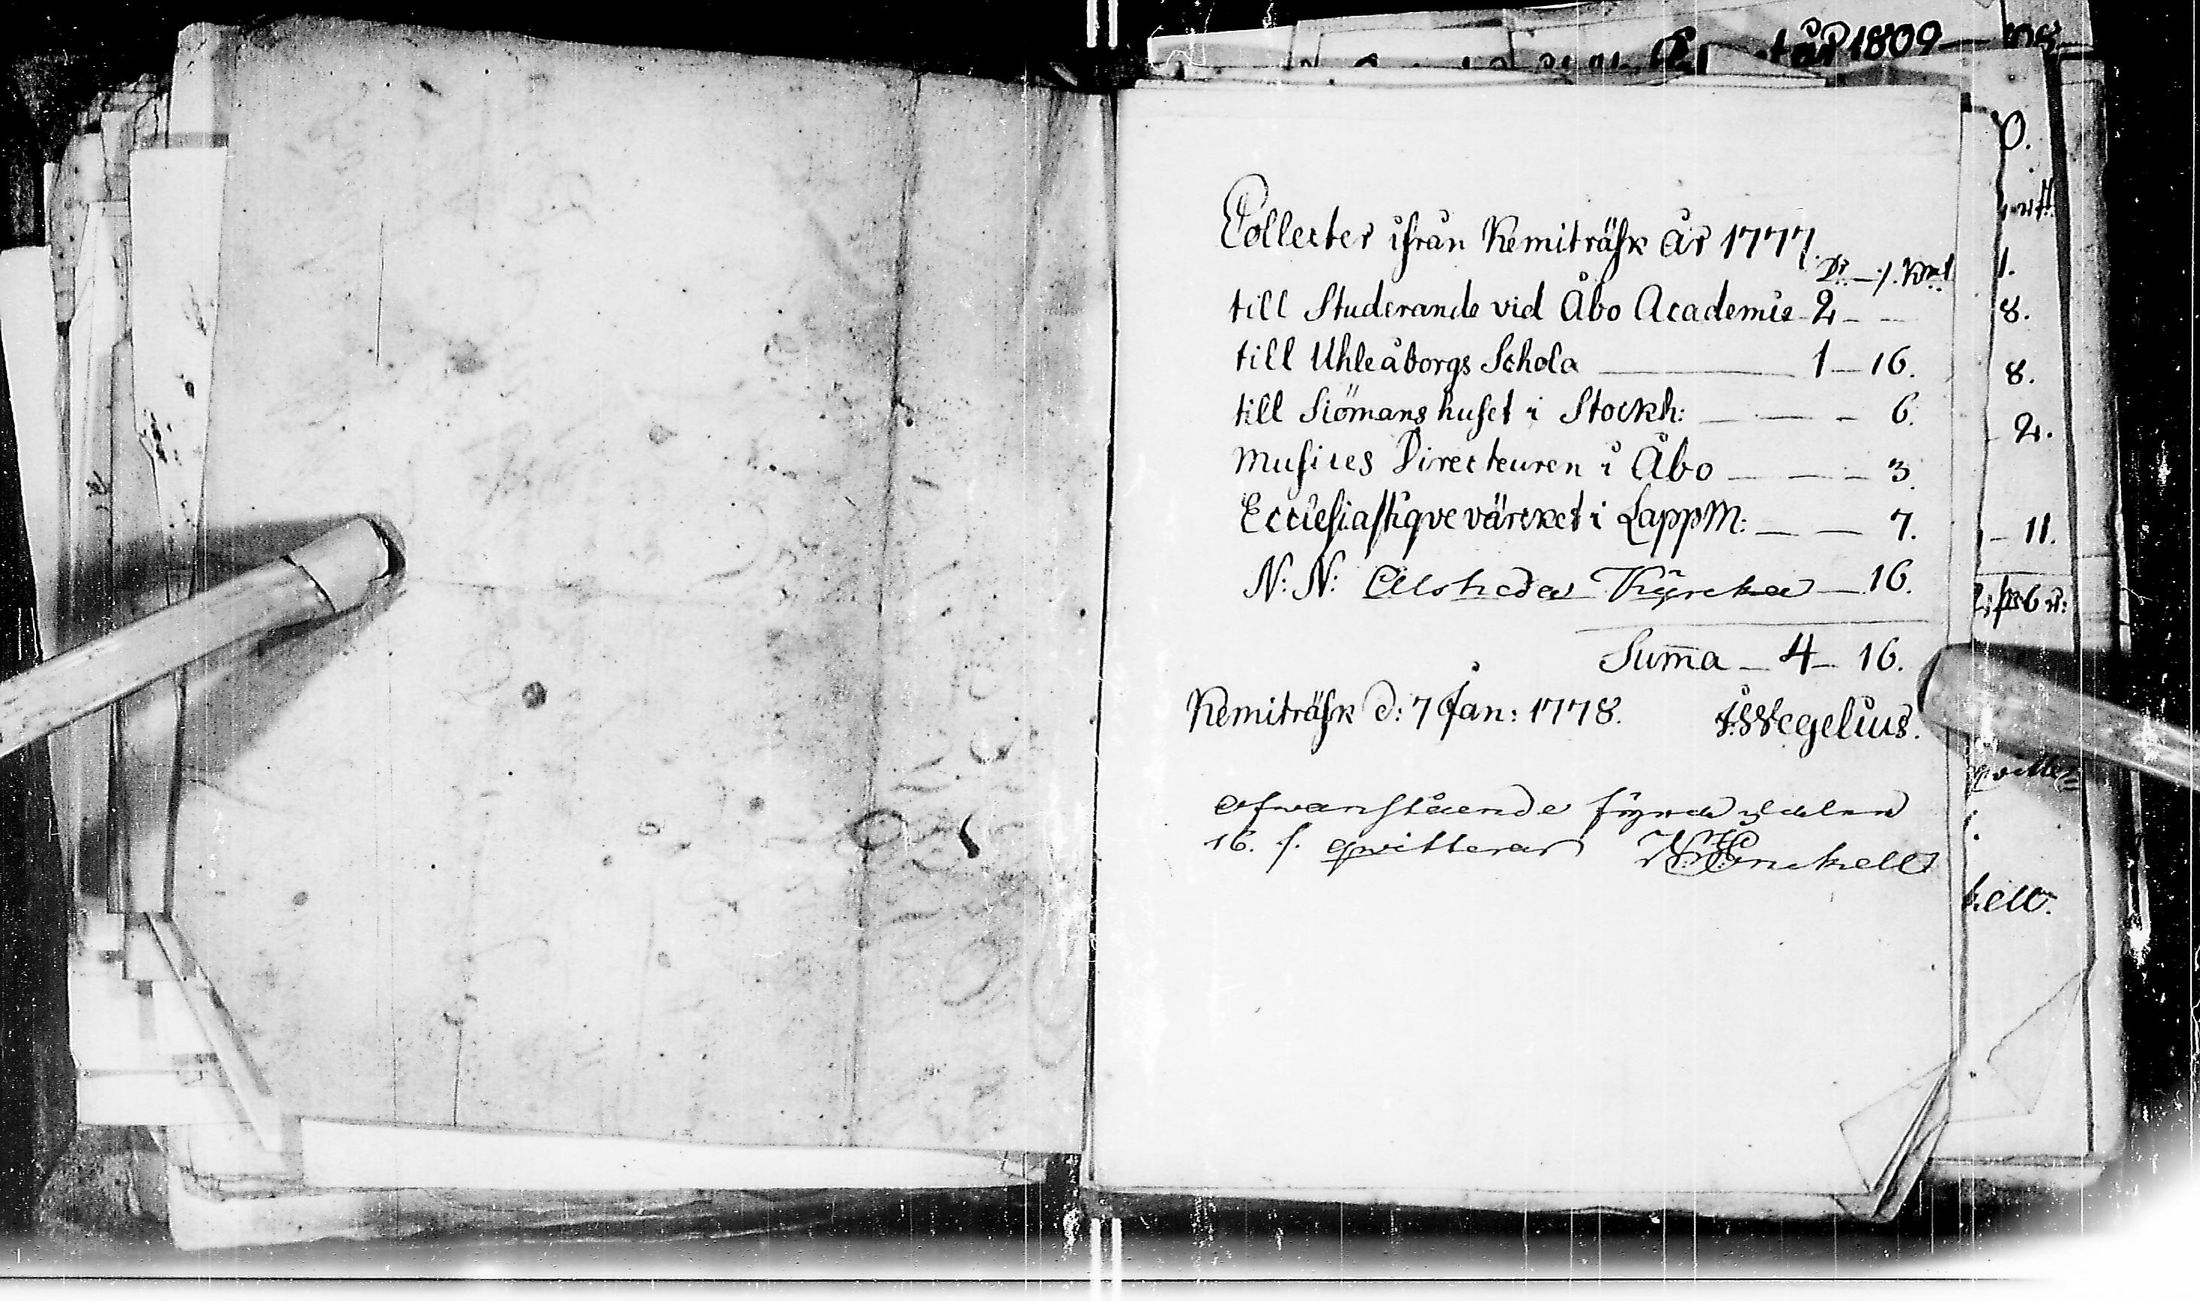 år 1809
Collecter ifrån Kemiträsk År 1777.
Dr — /. Kmt
till Studerande vid Åbo Academie 2 — —
till Uhleåborgs Schola — 1 — 16.
till Siömanshuset i Stockh: — — — 6.
Musices Directeuren i Åbo — — — 3.
Ecclesiastiqve värcket i LappM: — — 7.
N: N: Alsheda Kÿrcka — 16.
Summa — 4 — 16.
Kemiträsk d: 7 Jan: 1778. Wegelius.
ofvanstående fÿra dalen
16. /. qvitterar
0.
1.
8.
8.
2.
11.